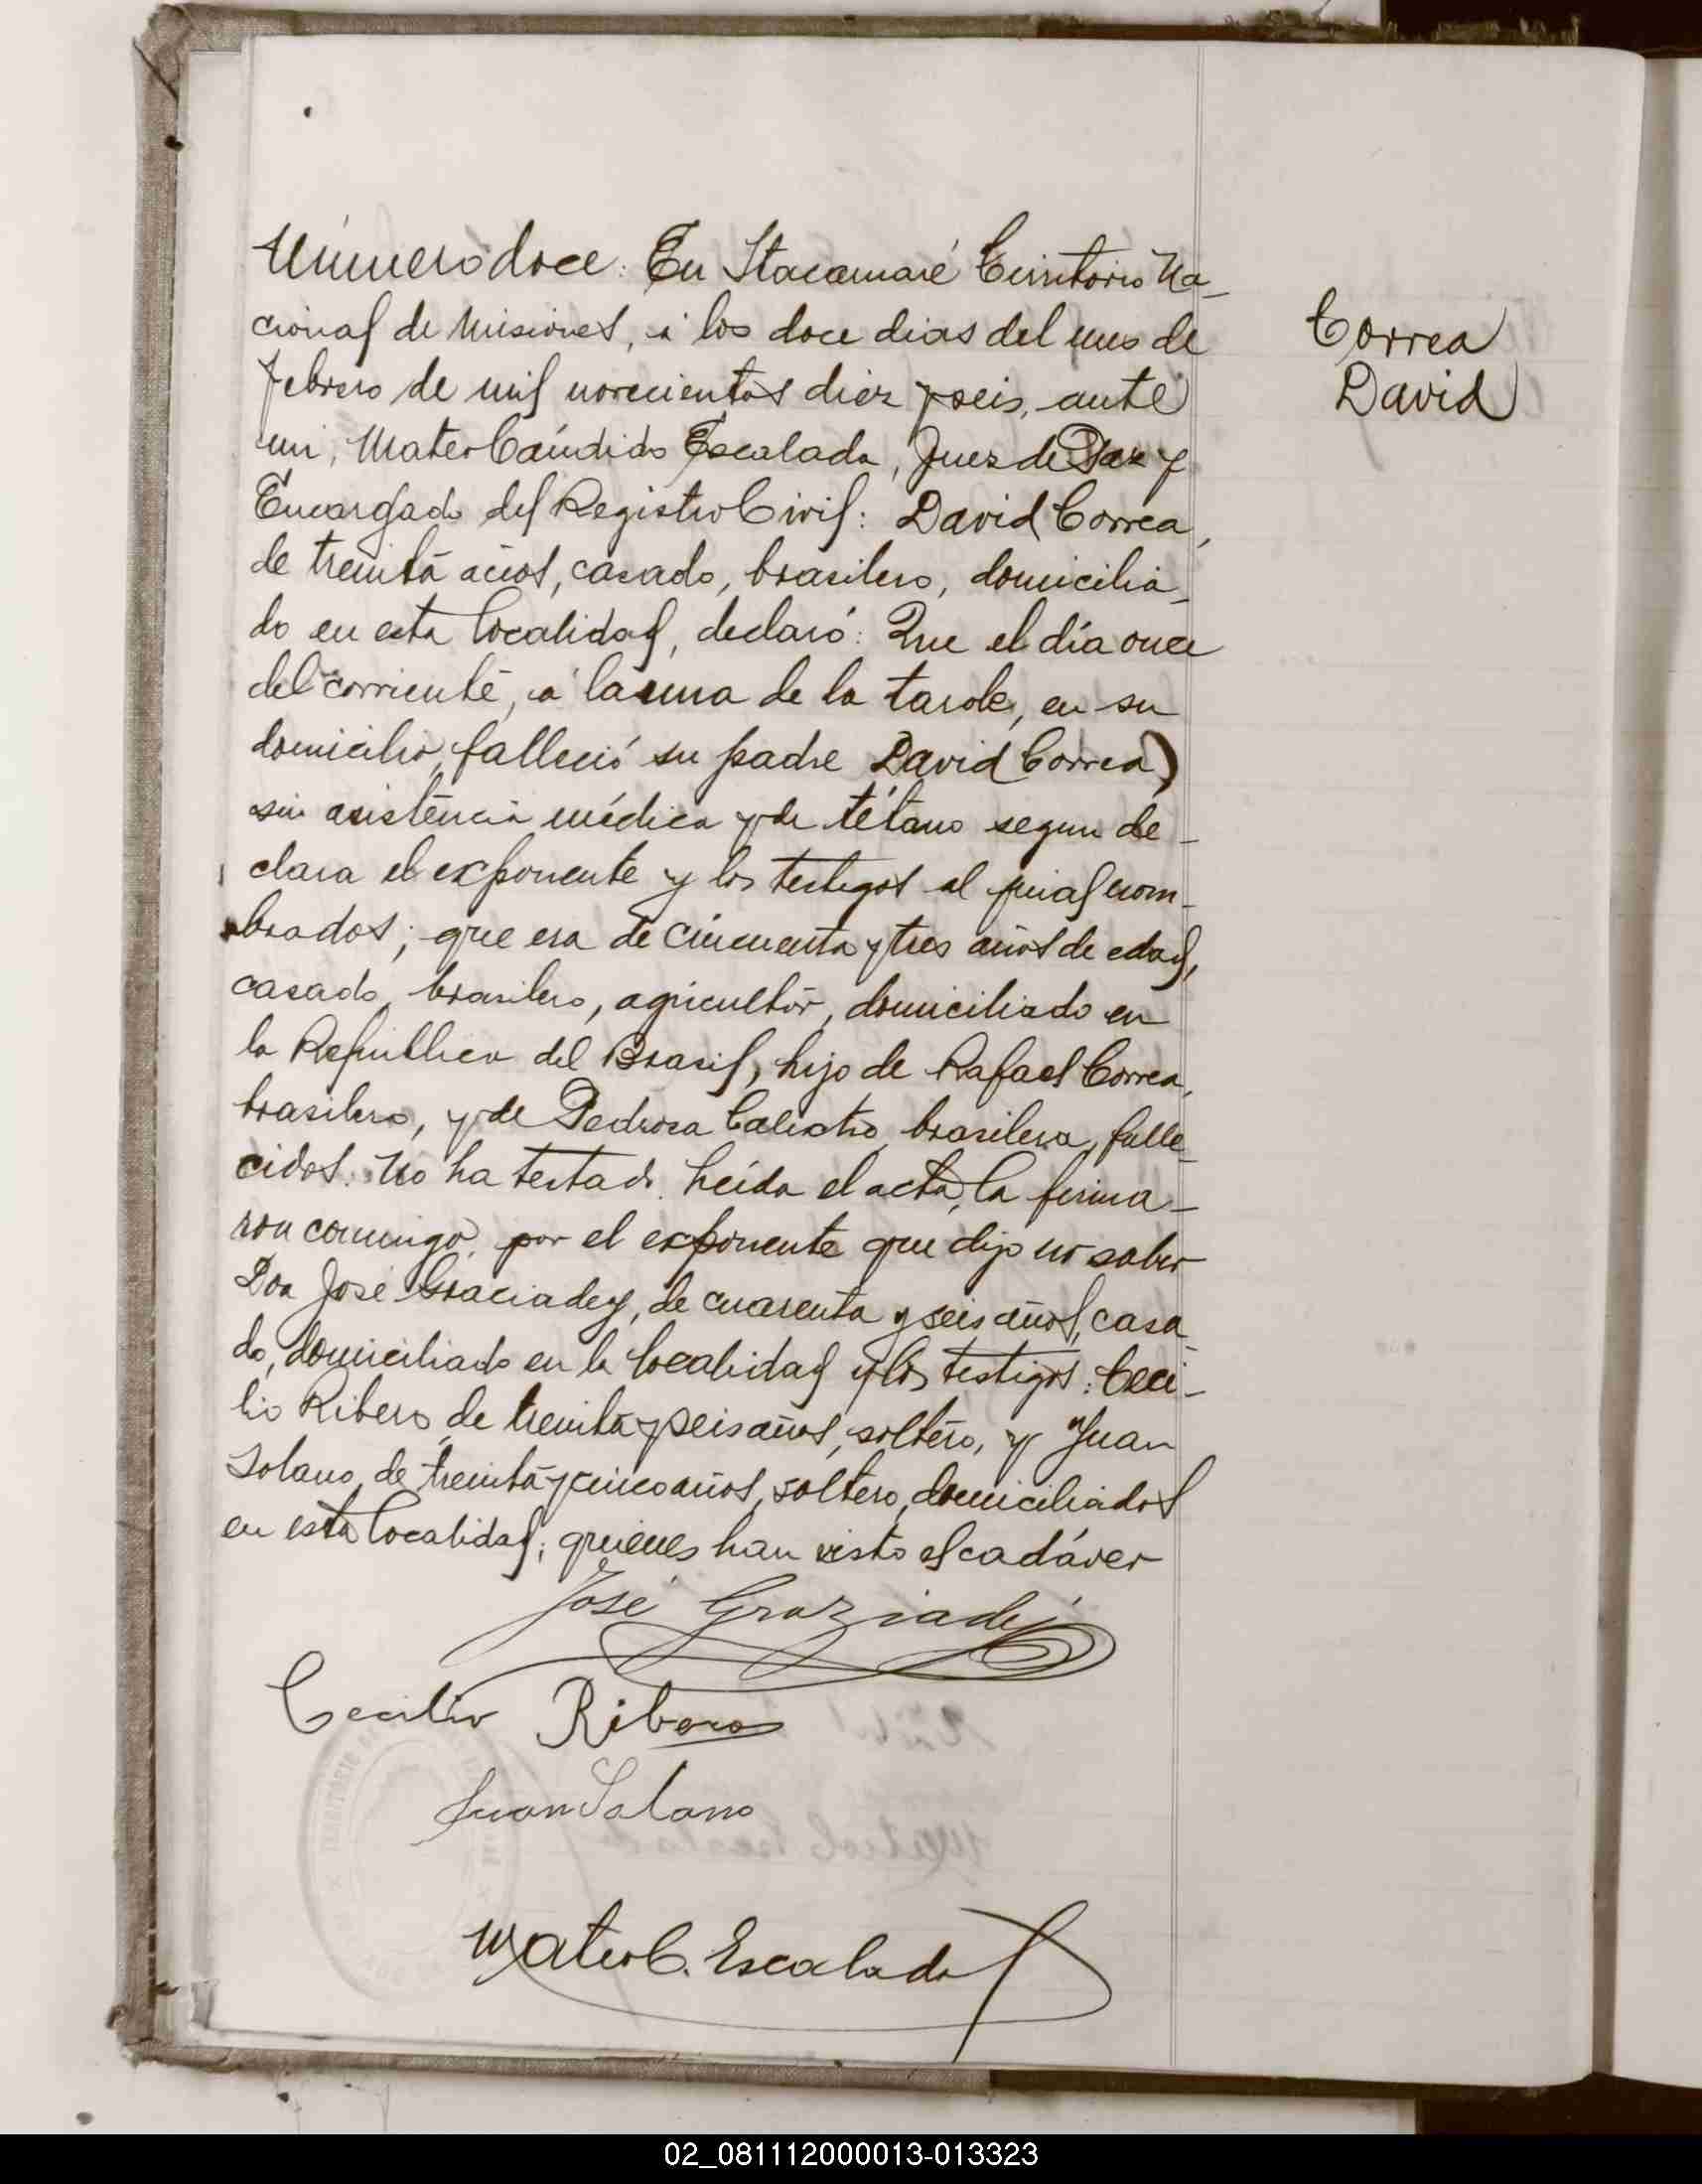 Número doce: En Itacaruaré Territorio Na-
cional de Misiones, á los doce dias del mes de
febrero de mil novecientos diez y seis, ante
mi, Mateo Cándido Escalada, Juez de Paz y
Encargado del Registro Civil: David Correa,
de treinta años, casado, brasilero, domicilia-
do en esta localidad, declaró: Que el día once
del corriente, á la una de la tarde, en su
domicilio, falleció su padre David Correa
sin asistencia médica y de tétano segun de-
clara el exponente y los testigos al final nom-
brados; que era de cincuenta y tres años de edad,
casado, brasilero, agricultor, domiciliado en
la República del Brasil, hijo de Rafael Correa,
brasilero, y de Pedrosa Calixtro, brasilera, falle-
cidos. No ha testado. Leída el acta, la firma-
ron conmigo, por el exponente que dijo no saber
Don José Graciadey, de cuarenta y seis años, casa-
do, domiciliado en la localidad y los testigos: Ceci-
lio Ribero, de treinta y seis años, soltero, y Juan
Solano, de treinta y cinco años, soltero, domiciliados
en esta localidad; quienes han visto el cadáver
José Graziadey
Cecilio Ribero
Juan Solano
Mateo C. Escalada
Correa
David
02_081112000013-013323